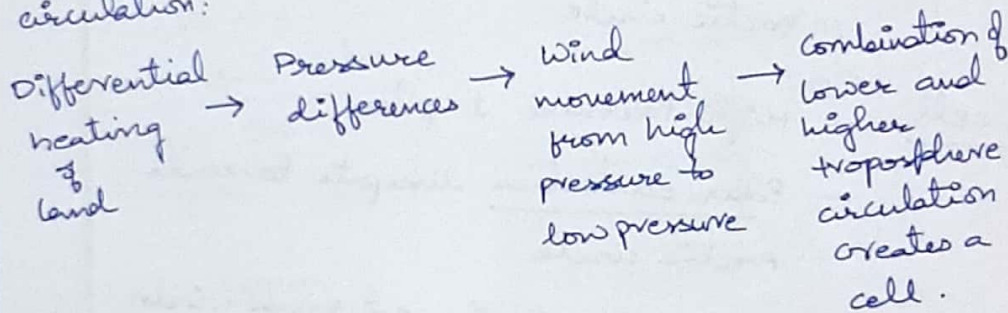 circulation:
Differential
heating
of
land
→
Pressure
differences
→
Wind
movement
from high
pressure to
low pressure
→
Combination of
lower and
higher
troposphere
circulation
creates a
cell.